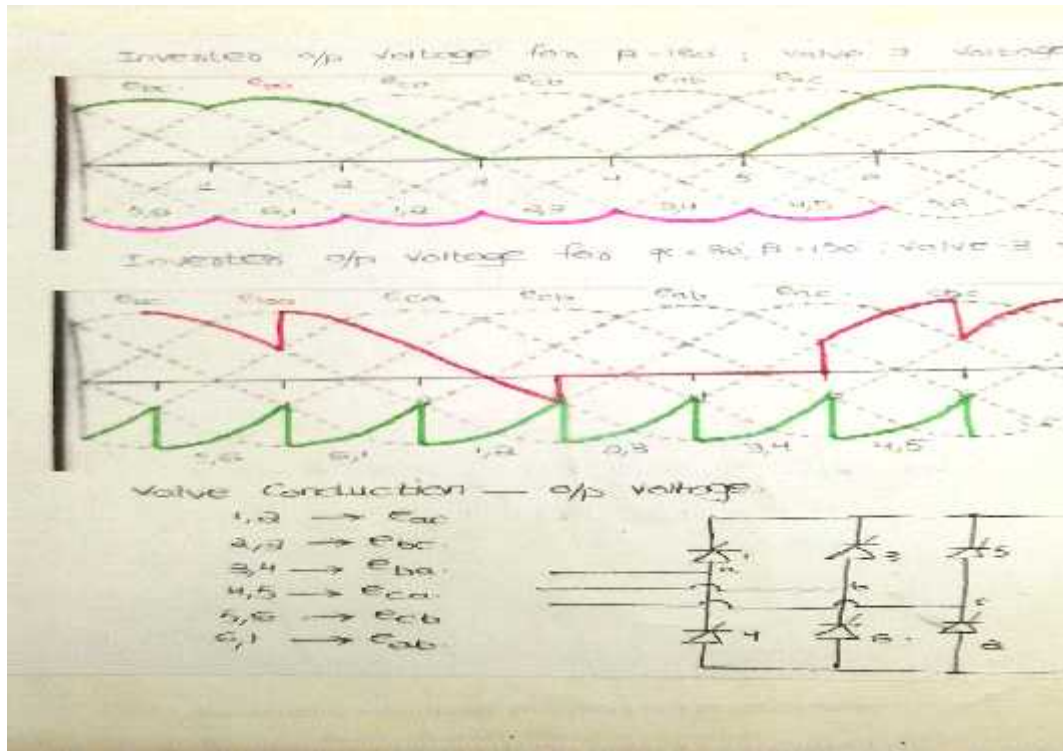 Inverter o/p voltage for β=180; valve 3 voltage
ebc eba eca ecb eab eac
1 2 3 4 5 6
5,6 6,1 1,2 2,3 3,4 4,5 5,6
Inverter o/p voltage for β=150; valve-3
ebc eba eca ecb eab eac ebc
5,6 6,1 1,2 2,3 3,4 4,5
Valve Conduction — o/p voltage.
1,2 → eac
2,3 → ebc.
3,4 → eba.
4,5 → eca.
5,6 → ecb
6,1 → eab.
1 3 5
a b c
4 6. 2